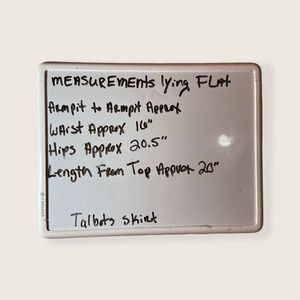 MEASUREMENTS lying FLAT
ARMpit to ARMpit Approx
WAist Approx 16"
Hips Approx 20.5"
Length From Top Approx 20"
Talbots skirt